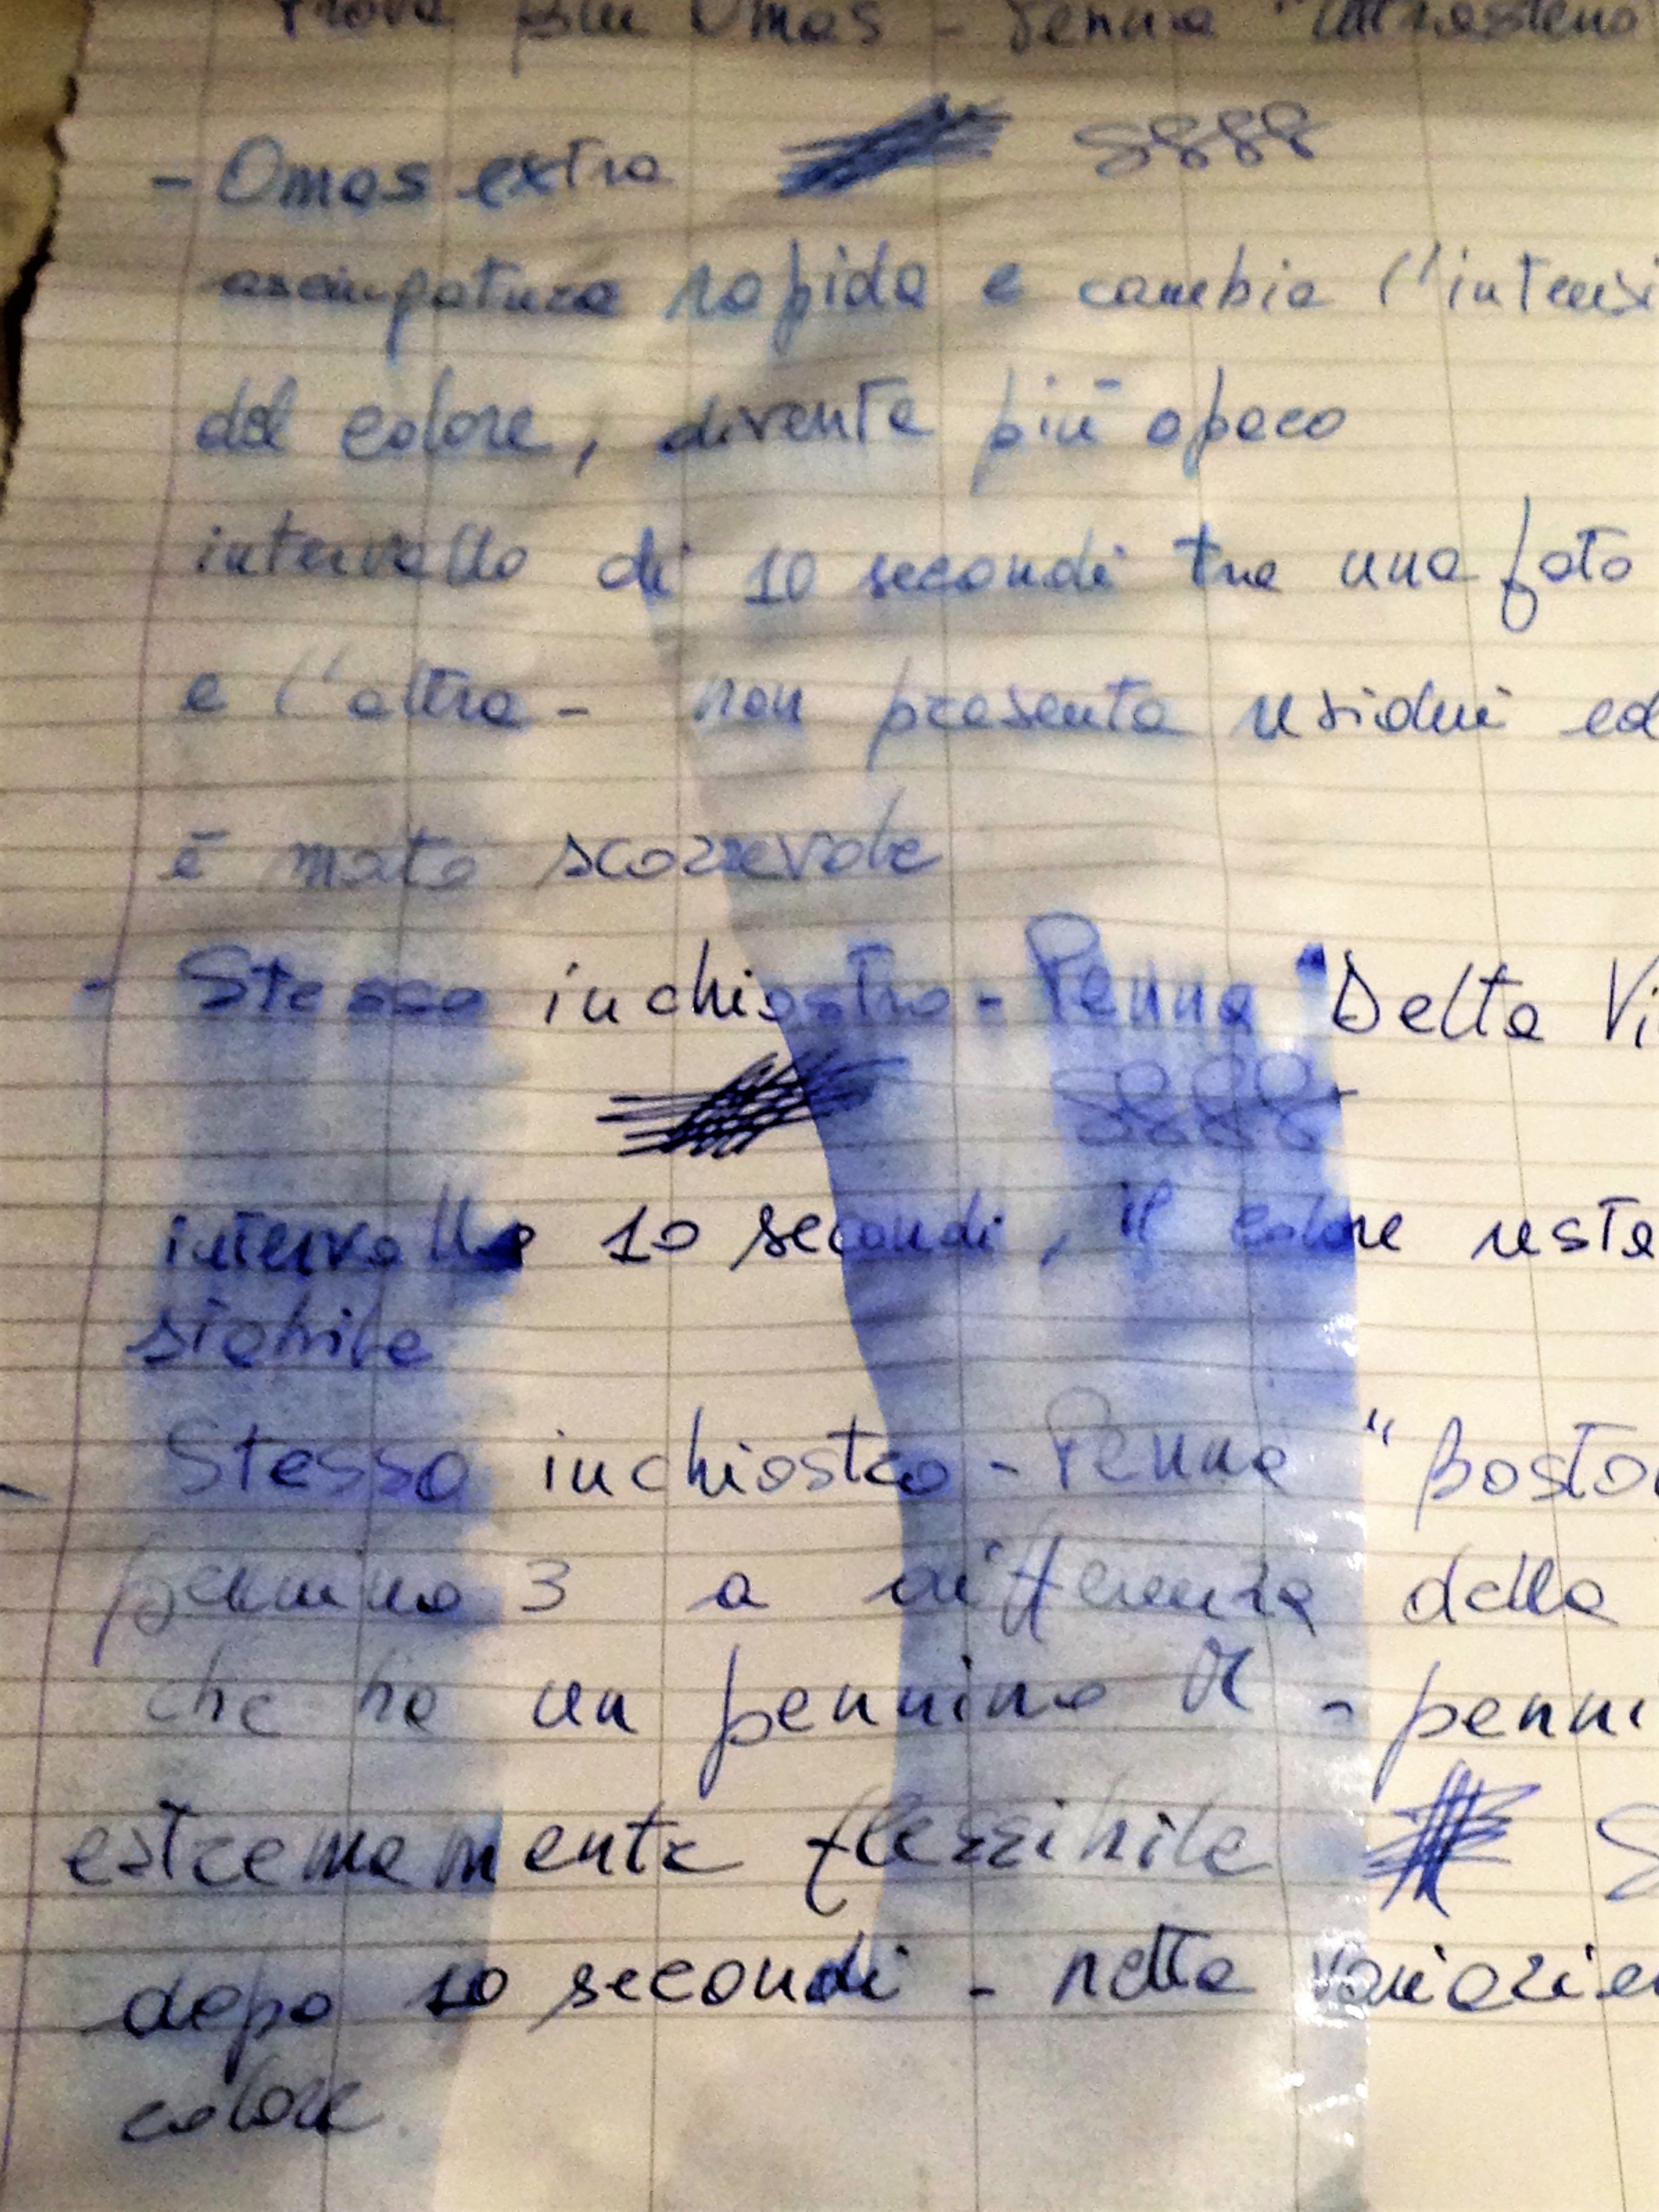 Prova Blu Omas - Penna "
- Omas extra 8888
asciugatura rapida e cambia l'intensi
del colore, diventa più opaco
intervallo di 10 secondi tra una foto
e l'altra - non presenta residui ed
è molto scorrevole
- Stesso inchiostro - Penna "Delta Vi
8888
intervallo 10 secondi, il colore resta
stabile
- Stesso inchiostro - Penna "Bosto
pennino 3 a differenza della
che ha un pennino M - penni
estremamente flessibile S
dopo 10 secondi - netta variazion
colore